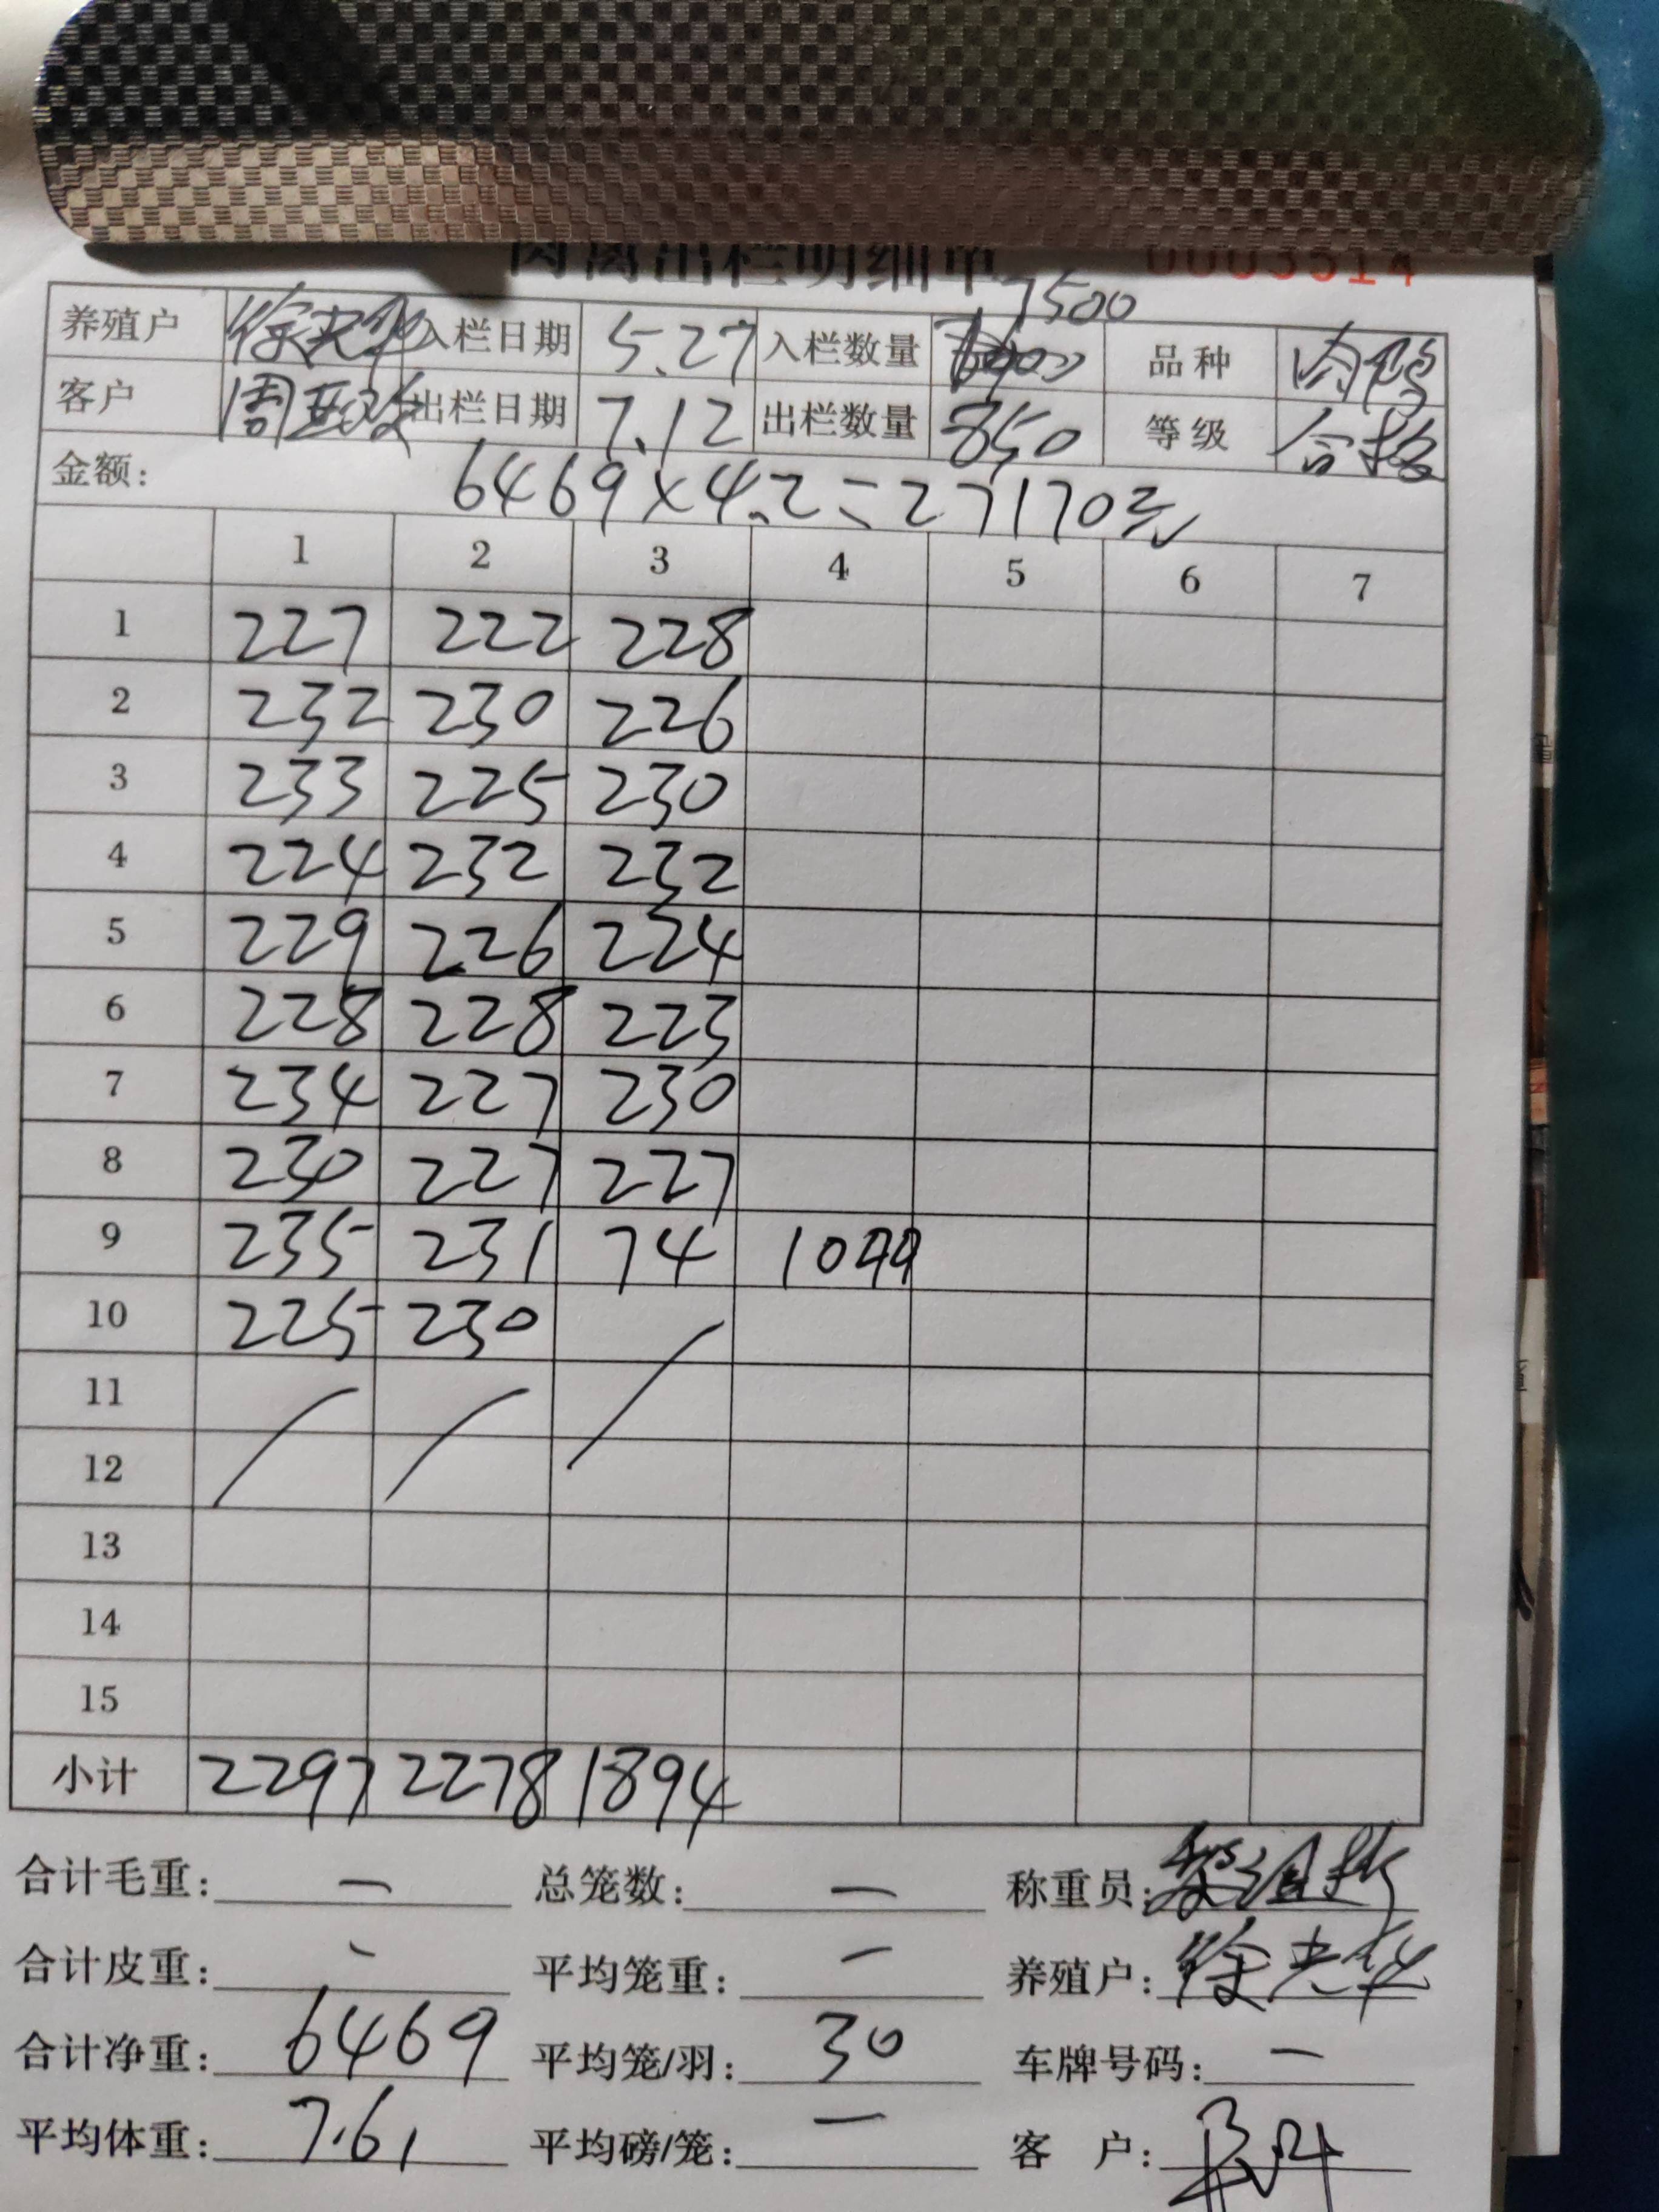 肉禽出栏明细单 0003514
7500
养殖户 徐光华 入栏日期 5.27 入栏数量 品种 肉鸭
客户 周 出栏日期 7.12 出栏数量 850 等级 合格
金额: 6469×4.2=27170元
1 2 3 4 5 6 7
1 227 222 228
2 232 230 226
3 233 225 230
4 224 232 232
5 229 226 224
6 228 228 223
7 234 227 230
8 230 227 227
9 235 231 74 1099
10 225 230
11
12
13
14
15
小计 2297 2278 1894
合计毛重: — 总笼数: — 称重员:
合计皮重: - 平均笼重: — 养殖户: 徐光华
合计净重: 6469 平均笼/羽: 30 车牌号码: —
平均体重: 7.61 平均磅/笼: — 客 户: